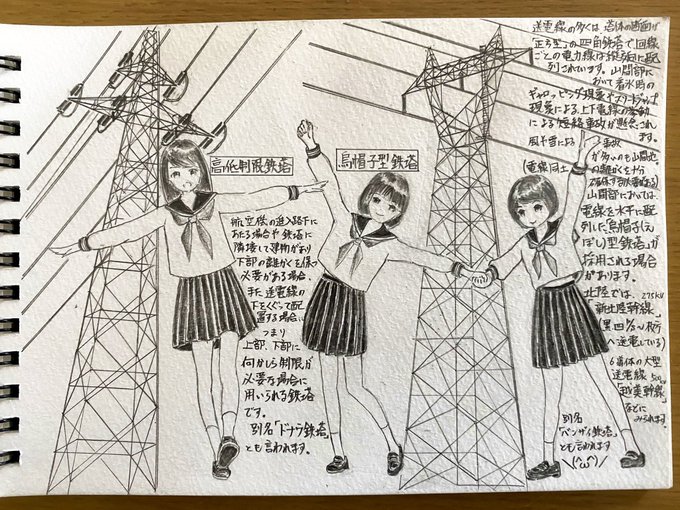 高低制限鉄塔
航空機の進入路下に
あたる場合や鉄塔に
隣接して建物があり
下部の離かくを保つ
必要がある場合、
また送電線の
下をくぐって配
置する場合、
つまり
上部、下部に
何かしら制限が
必要な場合に
用いられる鉄塔
です。
別名「ドナウ鉄塔」
とも言われます。
烏帽子型鉄塔
送電線の多くは、塔体の断面が
「正方型」の四角鉄塔で1回線
ごとの電力線は縦方向に配
列されています。山間部に
おいて着氷時の
ギャロッピング現象やスリートジャンプ
現象による上下電線の挙動
による短絡事故が懸念され
ます。
風や雪による事故
が多いのも山間地
(電線同士の離かくを十分
山間部においては、
電線を水平に配
列した「烏帽子(え
ぼし)型鉄塔」が
採用される場合
があります。
北陸では、275kV
「新北陸幹線」
へ送電している)
6導体の大型
送電線 500kV
「越美幹線」
などに
みられます。
別名
「バンザイ鉄塔」
とも言われます
\(^ω^)/